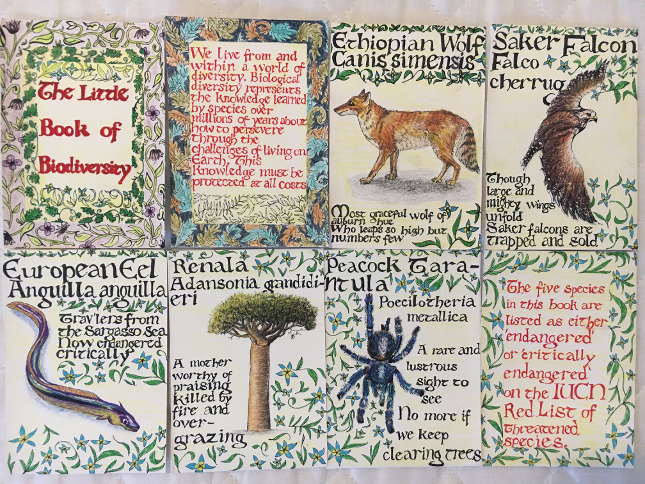 The Little
Book of
Biodiversity
We live from and
within a world of
diversity. Biological
diversity represents
the knowledge learned
by species over
millions of years about
how to persevere
through the
challenges of living on
Earth. This
Knowledge must be
protected at all costs
Ethiopian Wolf
Canis simensis
Most graceful wolf of
auburn hue
Who leaps so high but
numbers few
Saker Falcon
Falco
cherrug
Though
large and
mighty wings
unfold
Saker falcons are
trapped and sold
European Eel
Anguilla anguilla
Travlers from
the Sargasso Sea
Now endangered
critically
Renala
Adansonia grandidi-
eri
A mother
worthy of
praising
killed by
fire and
over-
grazing
Peacock Tara-
ntula
Poecilotheria
metallica
A rare and
lustrous
sight to
see
No more if
we keep
clearing trees
The five species
in this book are
listed as either
endangered
or critically
endangered
on the IUCN
Red List of
threatened
species.